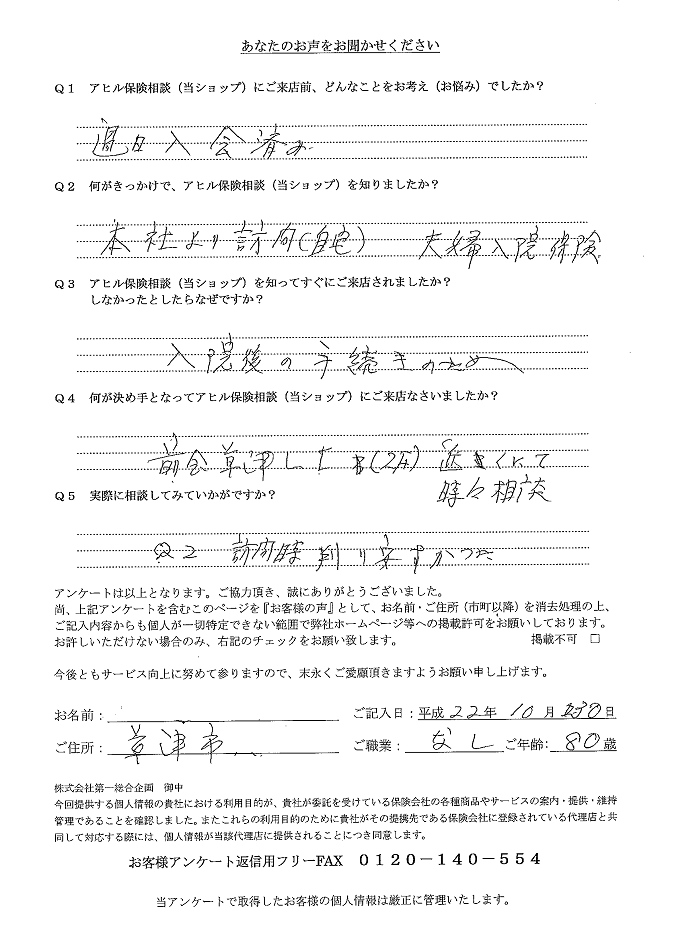 あなたのお声をお聞かせください
Q1 アヒル保険相談（当ショップ）にご来店前、どんなことをお考え（お悩み）でしたか？
過日入会済み
Q2 何がきっかけで、アヒル保険相談（当ショップ）を知りましたか？
本社より訪問(自宅) 夫婦入院保険
Q3 アヒル保険相談（当ショップ）を知ってすぐにご来店されましたか？
しなかったとしたらなぜですか？
入院後の手続きのため
Q4 何が決め手となってアヒル保険相談（当ショップ）にご来店なさいましたか？
草津 近くにて
時々相談
Q5 実際に相談してみていかがですか？
Q2 訪問時判り易すかった
アンケートは以上となります。ご協力頂き、誠にありがとうございました。
尚、上記アンケートを含むこのページを『お客様の声』として、お名前・ご住所（市町以降）を消去処理の上、
ご記入内容からも個人が一切特定できない範囲で弊社ホームページ等への掲載許可をお願いしております。
お許しいただけない場合のみ、右記のチェックをお願い致します。 掲載不可 □
今後ともサービス向上に努めて参りますので、末永くご愛顧頂きますようお願い申し上げます。
お名前： ご記入日：平成 22年 10月 30日
ご住所： 草津市 ご職業： なし ご年齢： 80歳
株式会社第一総合企画 御中
今回提供する個人情報の貴社における利用目的が、貴社が委託を受けている保険会社の各種商品やサービスの案内・提供・維持
管理であることを確認しました。またこれらの利用目的のために貴社がその提携先である保険会社に登録されている代理店と共
同して対応する際には、個人情報が当該代理店に提供されることにつき同意します。
お客様アンケート返信用フリーFAX 0120－140－554
当アンケートで取得したお客様の個人情報は厳正に管理いたします。